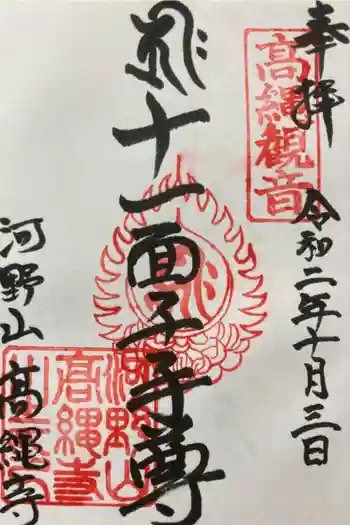 奉拝
高縄観音
令和二年十月三日
十一面千手尊
河野山
高縄寺
河野山
高縄寺